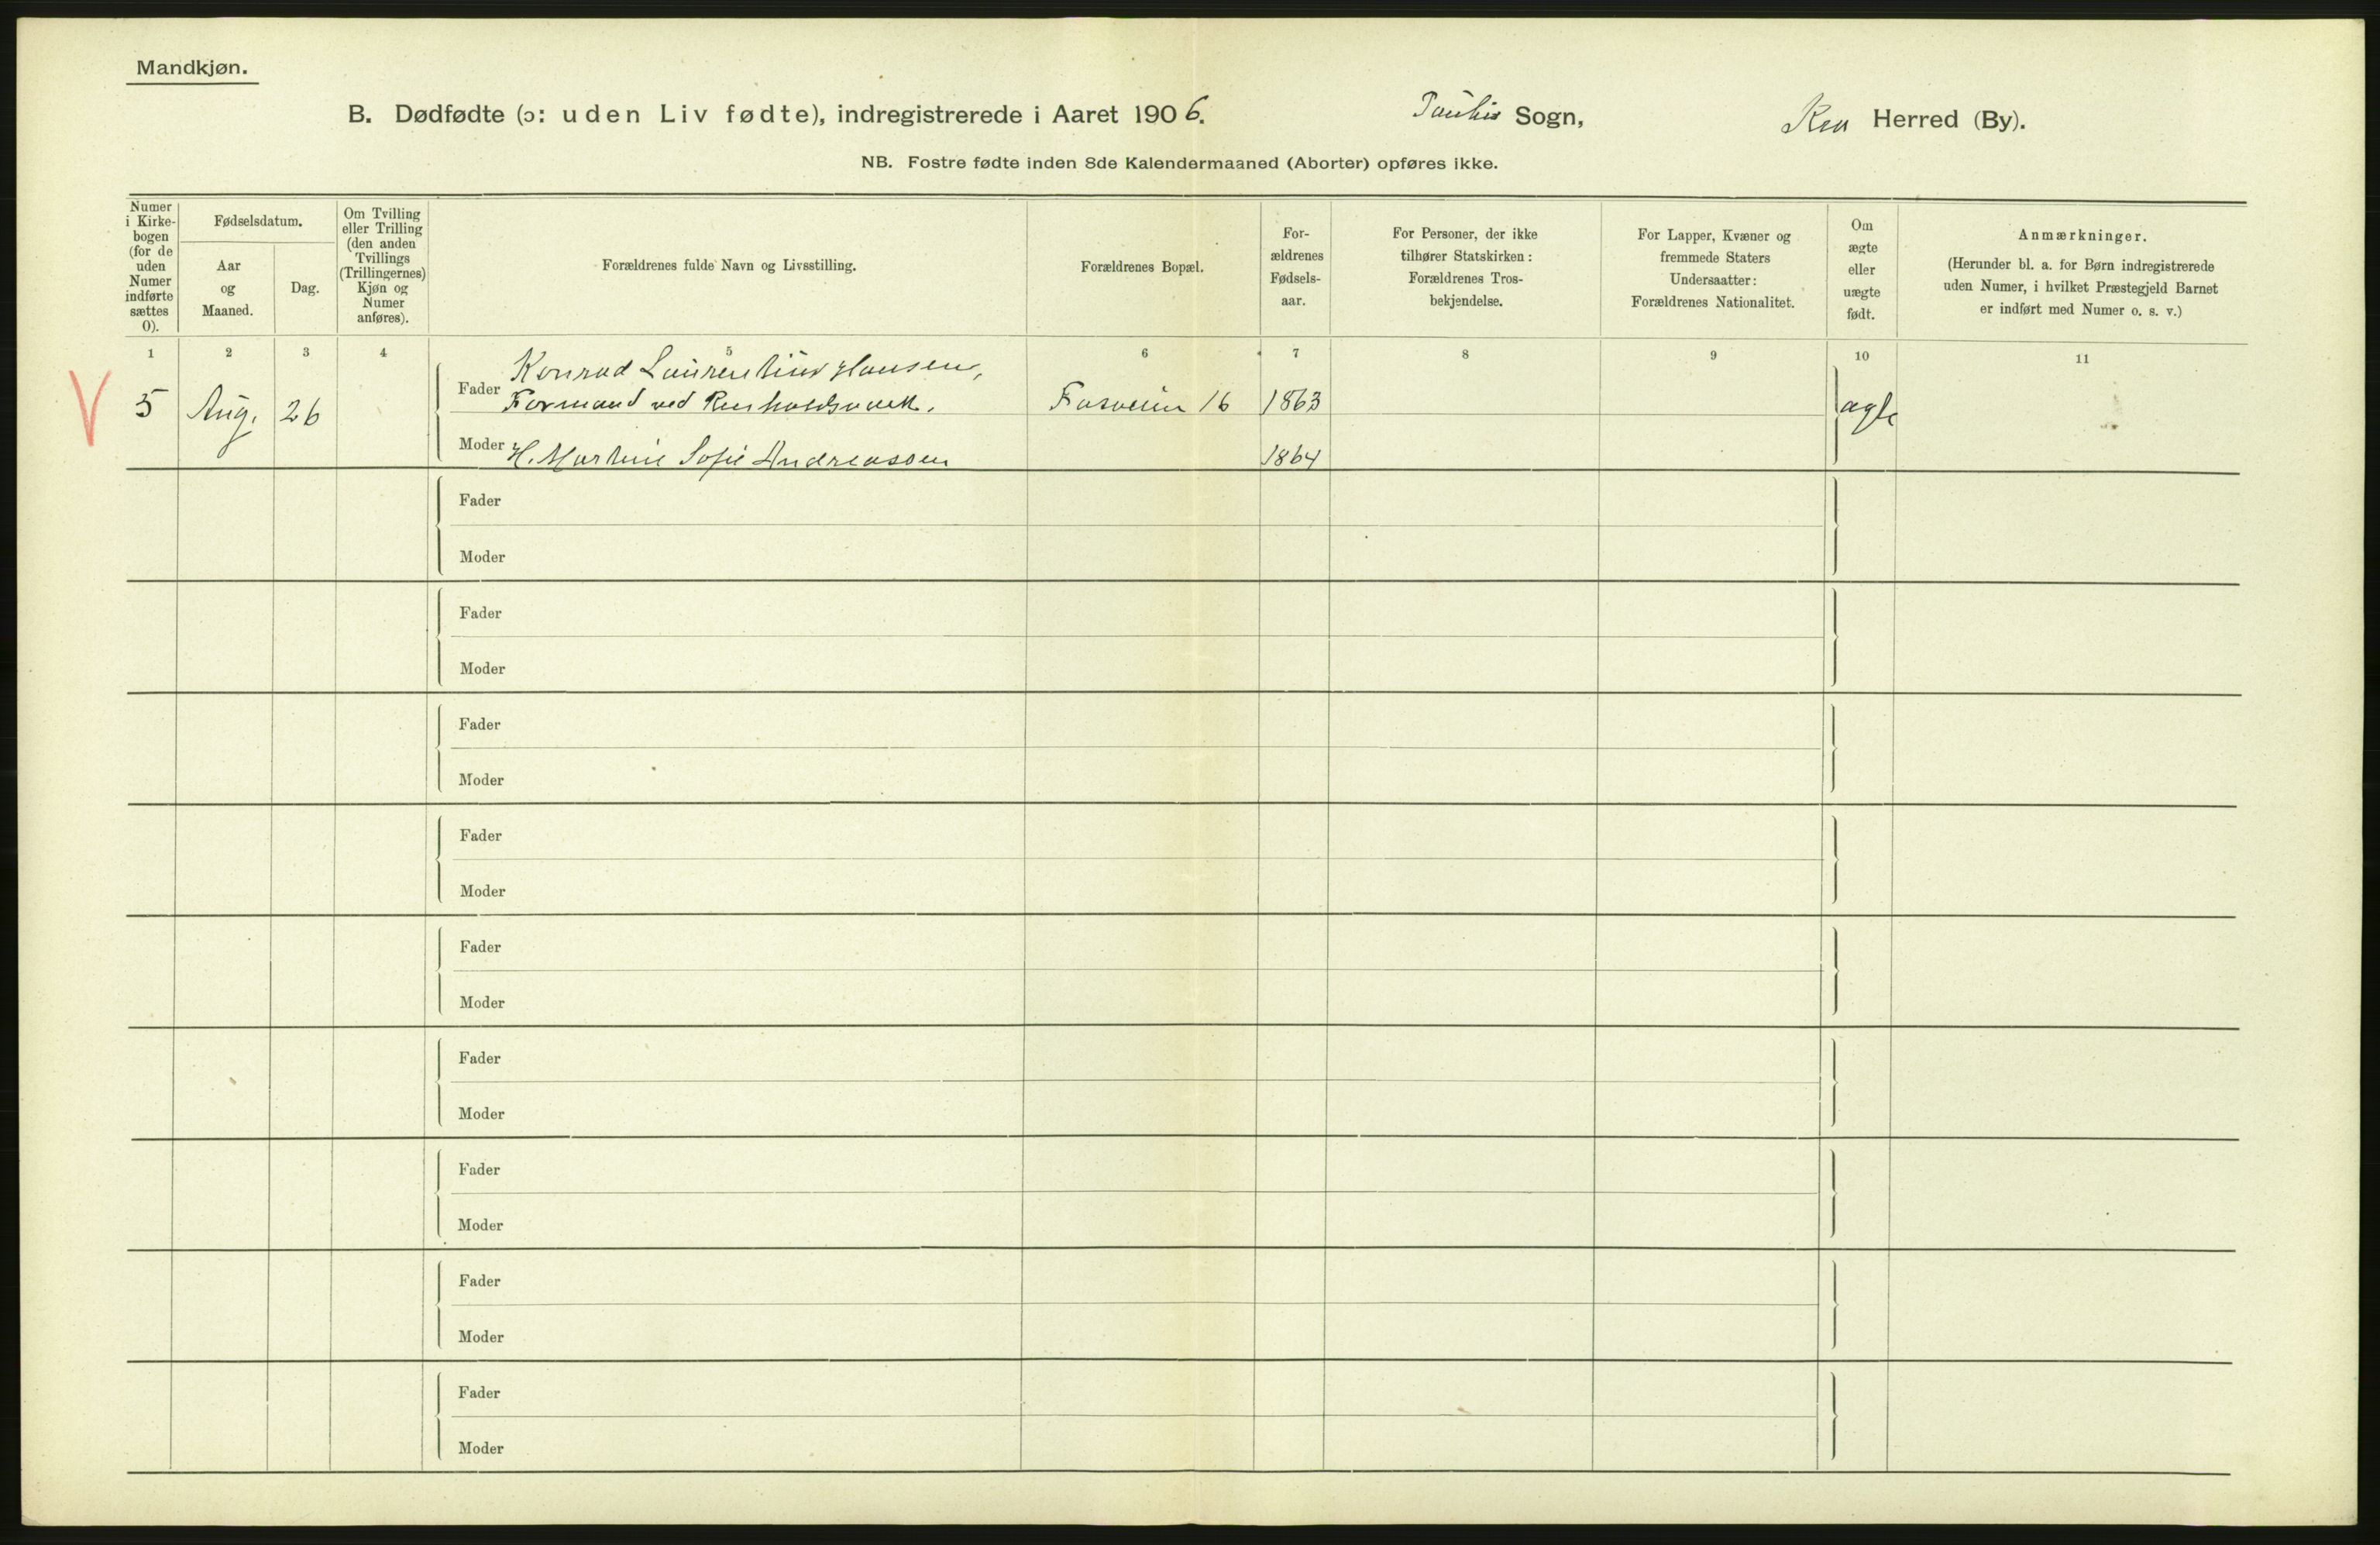 Mandkjøn.
B. Dødfødte (ɔ: uden Liv fødte), indregistrerede i Aaret 1906. Paulus Sogn, Kra Herred (By).
NB. Fostre fødte inden 8de Kalendermaaned (Aborter) opføres ikke.
Numer i Kirkebogen (for de uden Numer indførte sættes 0).
Fødselsdatum.
Aar og Maaned.
Dag.
Om Tvilling eller Trilling (den anden Tvillings (Trillingernes) Kjøn og Numer anføres).
Forældrenes fulde Navn og Livsstilling.
Forældrenes Bopæl.
Forældrenes Fødselsaar.
For Personer, der ikke tilhører Statskirken: Forældrenes Trosbekjendelse.
For Lapper, Kvæner og fremmede Staters Undersaatter: Forældrenes Nationalitet.
Om ægte eller uægte født.
Anmærkninger.
(Herunder bl. a. for Børn indregistrerede uden Numer, i hvilket Præstegjeld Barnet er indført med Numer o. s. v.)
1 2 3 4 5 6 7 8 9 10 11
V 5 Aug. 26
Fader Konrad Laurentius Hansen,
Formand ved Renholdsværk. 16 1863 ægte
Moder H. Martine Sofie Andreassen 1864
Fader
Moder
Fader
Moder
Fader
Moder
Fader
Moder
Fader
Moder
Fader
Moder
Fader
Moder
Fader
Moder
Fader
Moder